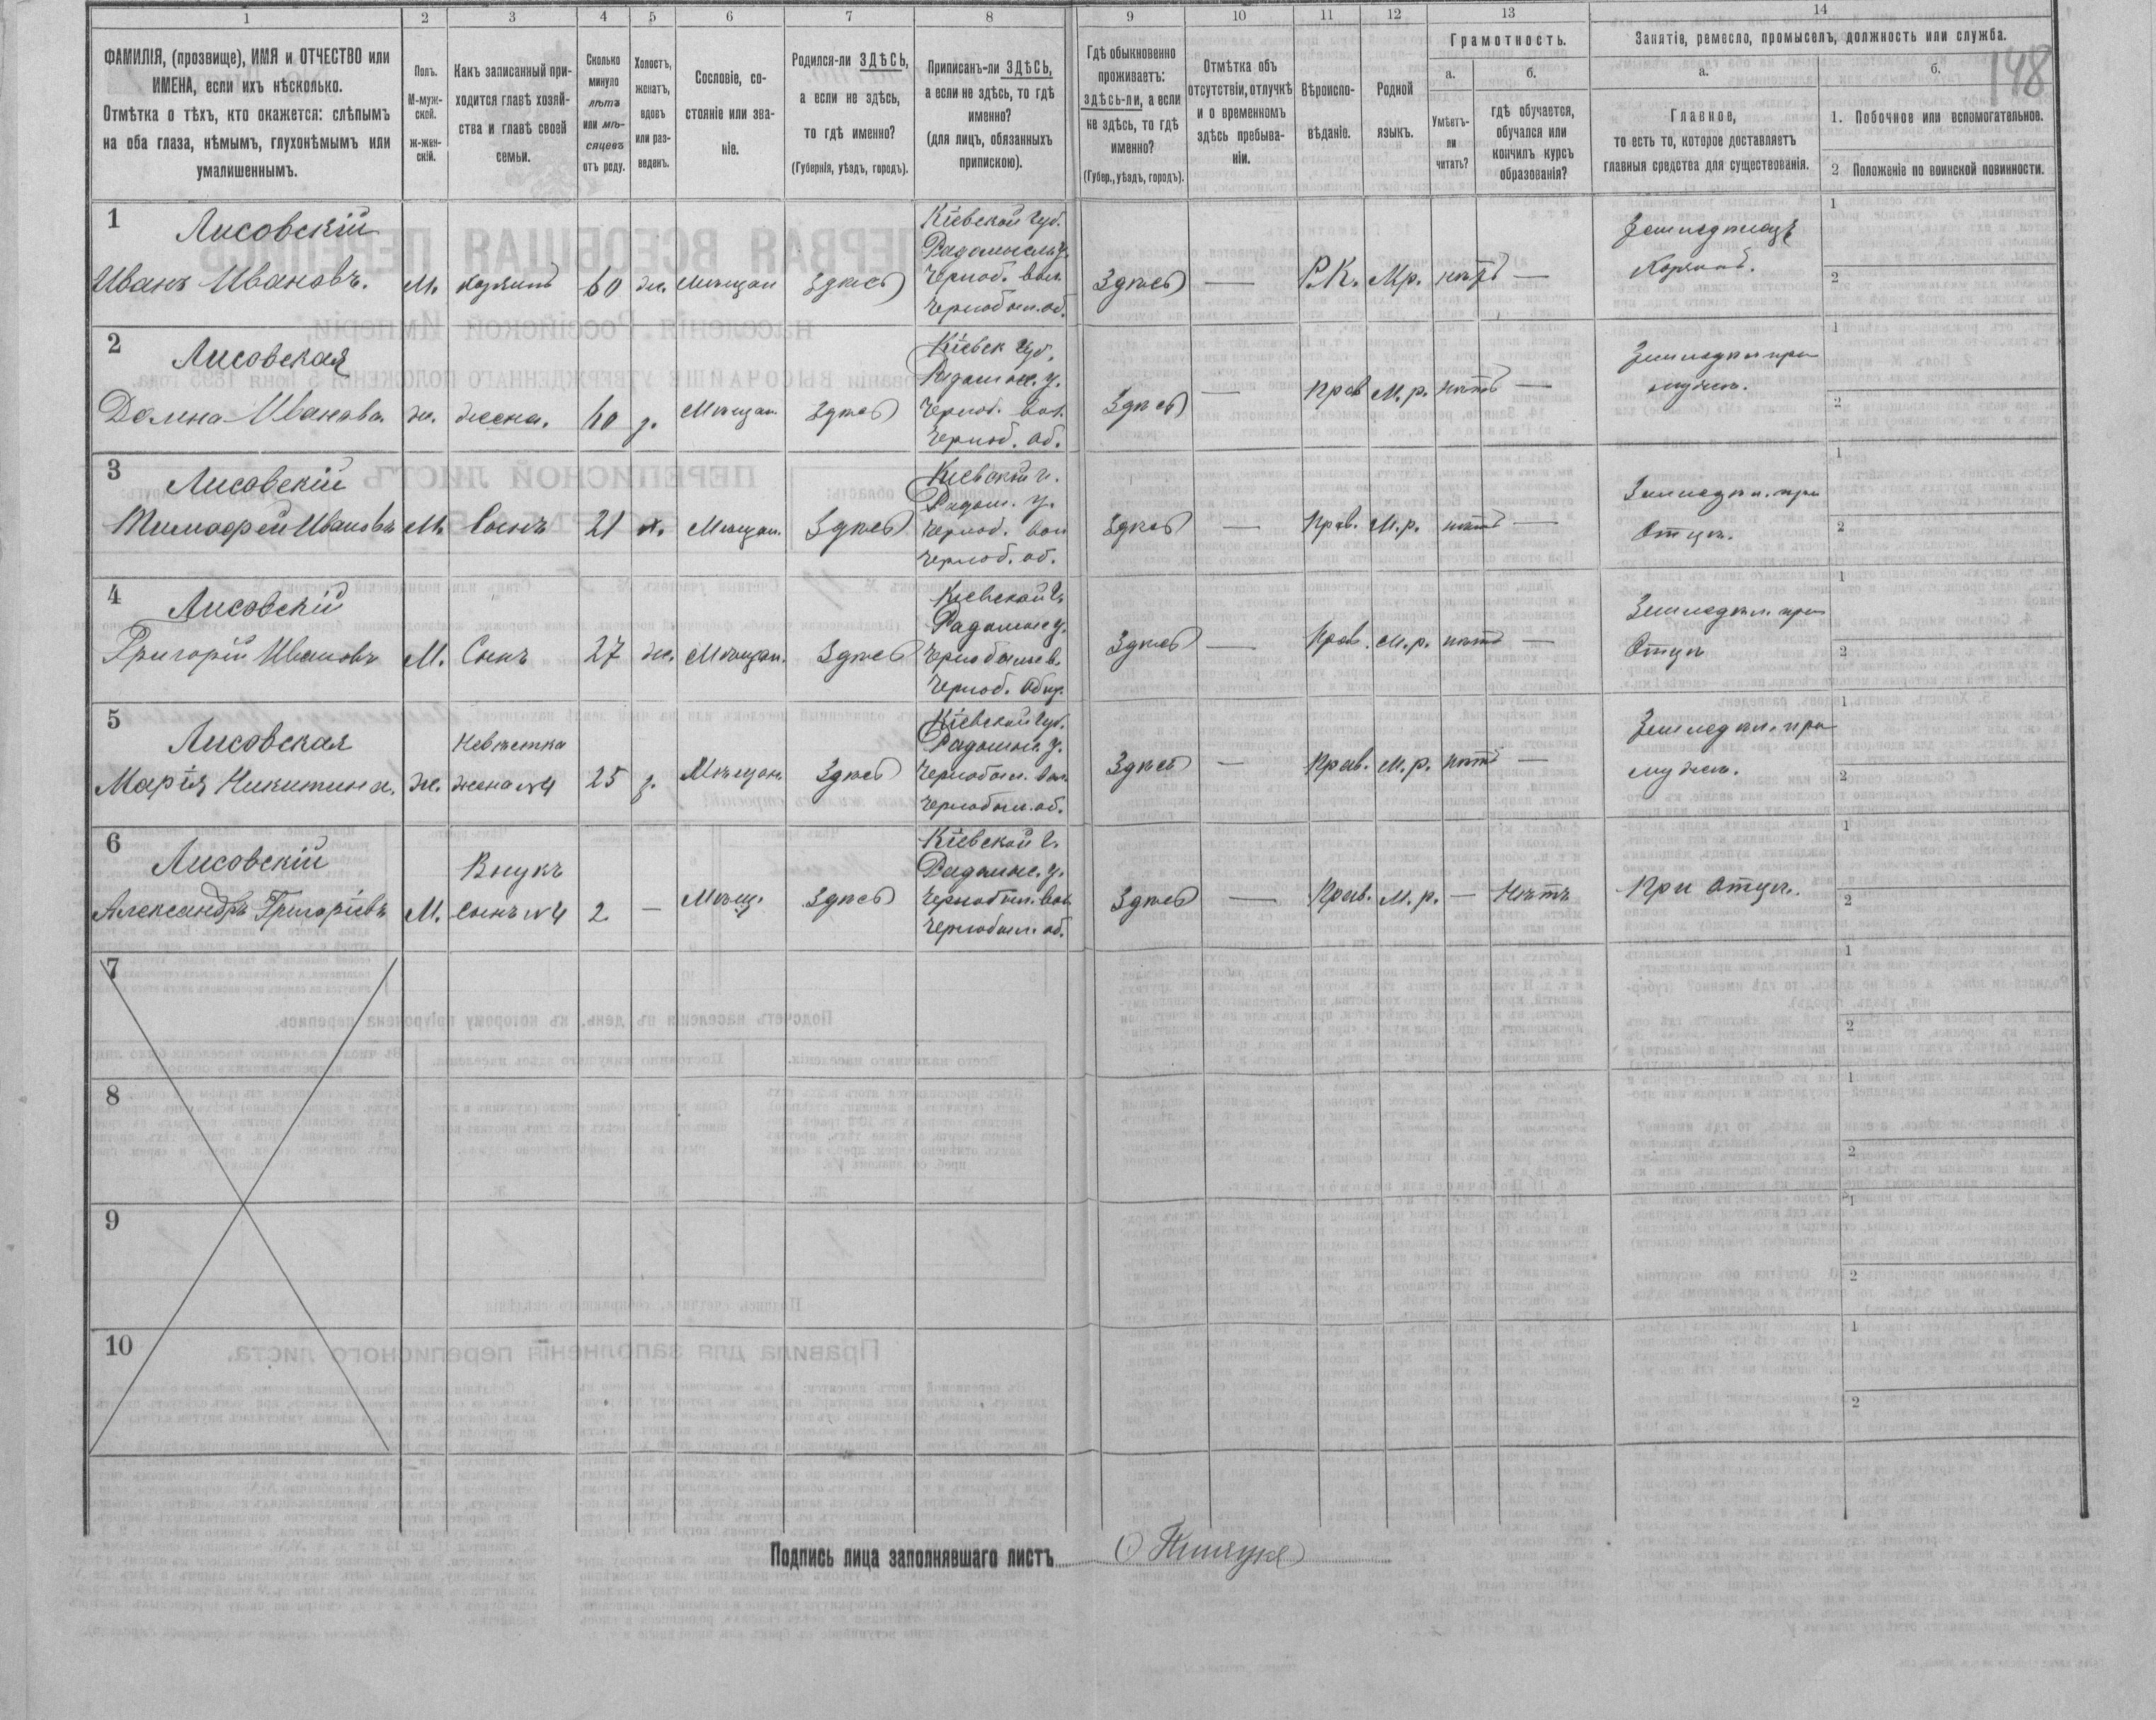 1 2 3 4 5 6 7 8 9 10 11 12 13 14
148
ФАМИЛІЯ, (прозвище), ИМЯ и ОТЧЕСТВО или
ИМЕНА, если ихъ нѣсколько.
Отмѣтка о тѣхъ, кто окажется: слѣпымъ
на оба глаза, нѣмымъ, глухонѣмымъ или
умалишеннымъ.
Полъ.
М-муж-
ской.
ж-жен-
скій.
Какъ записанный при-
ходится главѣ хозяй-
ства и главѣ своей
семьи.
Сколько
минуло
лѣтъ
или мѣ-
сяцевъ
отъ роду.
Холостъ,
женатъ,
вдовъ
или раз-
веденъ.
Сословіе, со-
стояніе или зва-
ніе.
Родился-ли ЗДѢСЬ,
а если не здѣсь,
то гдѣ именно?
(Губернія, уѣздъ, городъ).
Приписанъ-ли ЗДѢСЬ,
а если не здѣсь, то гдѣ
именно?
(для лицъ, обязанныхъ
припискою).
Гдѣ обыкновенно
проживаетъ:
здѣсь-ли, а если
не здѣсь, то гдѣ
именно?
(Губер., уѣздъ, городъ).
Отмѣтка объ
отсутствіи, отлучкѣ
и о временномъ
здѣсь пребыва-
ніи.
Вѣроиспо-
вѣданіе.
Родной
языкъ.
Грамотность.
а.
Умѣетъ-
ли
читать?
б.
гдѣ обучается,
обучался или
кончилъ курсъ
образованія?
Занятіе, ремесло, промыселъ, должность или служба.
а.
Главное,
то есть то, которое доставляетъ
главныя средства для существованія.
б.
1. Побочное или вспомогательное.
2 Положеніе по воинской повинности.
1
Лисовскій
Иванъ Ивановъ.
М. хозяинъ 60 ж. Мѣщан Здѣсь
Кіевской губ.
Радомысль. у.
Черноб. вол.
Чернобыл. об.
Здѣсь — Р.К. Мр. нѣтъ —
1
2
2
Лисовская
Ивановa.
ж. жена. 60 з. Мѣщан. Здѣсь
Кіевск губ.
Радомыс. у.
Черноб. вол.
Черноб. об.
Здѣсь — Прав М.р. нѣтъ —
Земледѣл при
мужѣ.
1
2
3
Лисовскій
Тимофей Ивановъ
М. Сынъ 21 х. Мѣщан. Здѣсь
Кіевской г.
Радом. у.
Черноб. вол
Черноб. об.
Здѣсь — Прав. М.р. нѣтъ —
Земледѣл. при
Отцѣ.
1
2
4
Лисовскій
Григорій Ивановъ
М. Сынъ 27 ж. Мѣщан. Здѣсь
Кіевской г.
Радомыс у.
Чернобыл в.
Черноб. Общ.
Здѣсь — Прав. М.р. нѣтъ —
Земледѣл. при
Отцѣ
1
2
5
Лисовская
Марія Никитина.
ж.
Невѣстка
жена №4
25 з. Мѣщан. Здѣсь
Кіевской губ.
Радомыс. у.
Чернобыл. вол.
Чернобыл. об.
Здѣсь — Прав. М.р. нѣтъ —
Земледѣл. при
мужѣ.
1
2
6
Лисовскій
Александръ Григоріевъ
М.
Внукъ
Сынъ №4
2. — Мѣщ. Здѣсь
Кіевской г.
Радомыс. у.
Чернобыл. вол.
Чернобыл. об.
Здѣсь — Прав. М.р. — Нѣтъ
При отцѣ.
1
2
7
1
2
8
1
2
9
1
2
10
1
2
Подпись лица заполнявшаго листъ